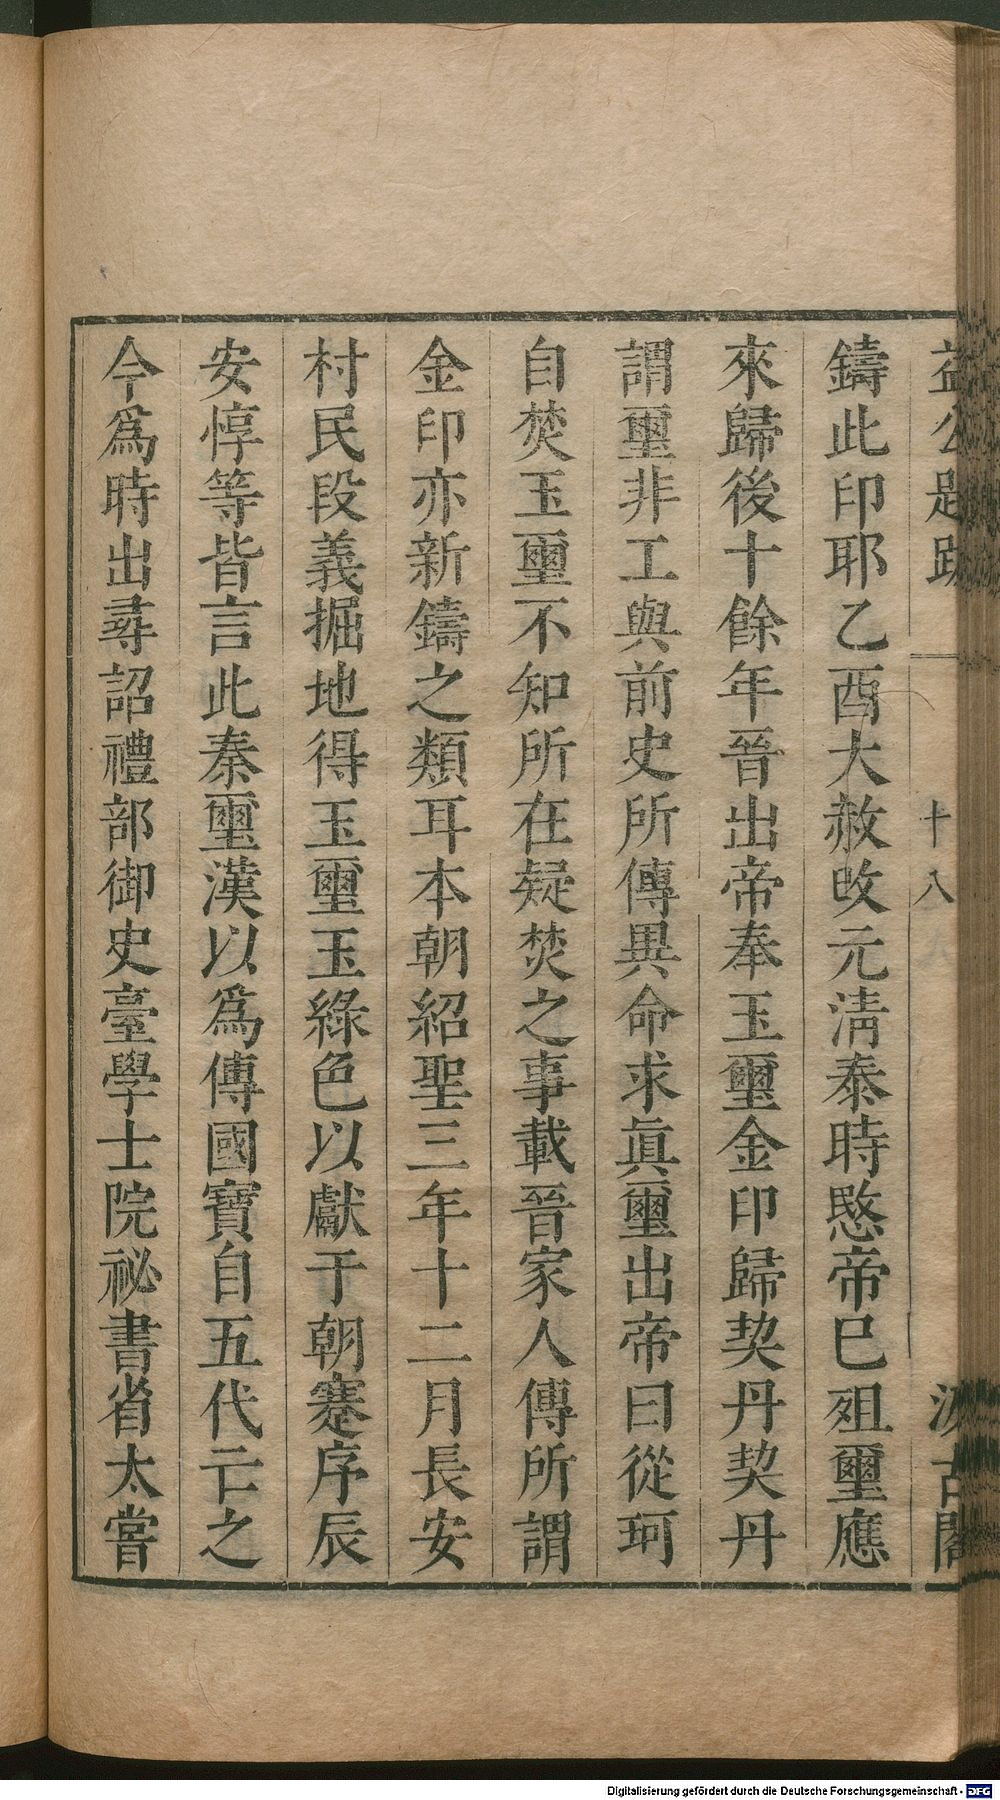 益公題跋 十八 汲古閣
鑄此印耶乙酉大赦改元清泰時愍帝已殂璽應
來歸後十餘年晉出帝奉玉璽金印歸契丹契丹
謂璽非工與前史所傳異命求眞璽出帝曰從珂
自焚玉璽不知所在疑焚之事載晉家人傳所謂
金印亦新鑄之類耳本朝紹聖三年十二月長安
村民段義掘地得玉璽玉綠色以獻于朝蹇序辰
安惇等皆言此秦璽漢以爲傳國寶自五代亡之
今爲時出尋詔禮部御史臺學士院祕書省太甞
Digitalisierung gefördert durch die Deutsche Forschungsgemeinschaft - DFG